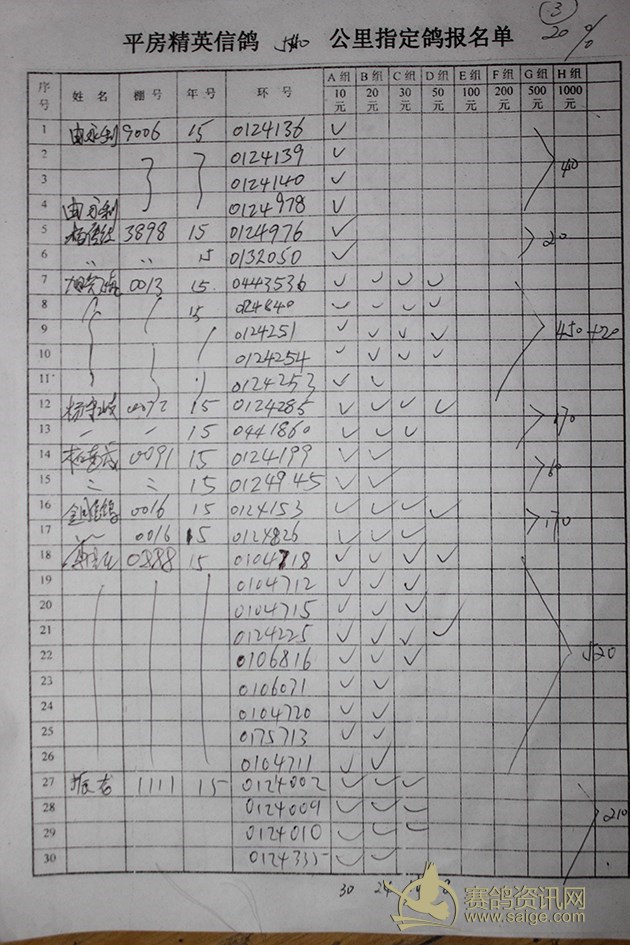 ③
20%
平房精英信鸽 540 公里指定鸽报名单
序号 姓名 棚号 年号 环号 A组10元 B组20元 C组30元 D组50元 E组100元 F组200元 G组500元 H组1000元
1 由永利 9006 15 0124136 ✓
2 0124139 ✓
3 0124140 ✓ 40
4 由永利 0124978 ✓
5 3898 15 0124976 ✓ 20
6 〃 〃 15 0132050 ✓
7 0013 15 0443536 ✓ ✓ ✓ ✓
8 15 0124840 ✓ ✓ ✓ ✓
9 0124251 ✓ ✓ ✓ ✓ 450+20
10 0124254 ✓ ✓ ✓ ✓
11 0124253 ✓ ✓
12 15 0124285 ✓ ✓ ✓ ✓ 170
13 15 0441860 ✓ ✓ ✓
14 0091 15 0124199 ✓ ✓ 60
15 15 0124945 ✓ ✓
16 0016 15 0124153 ✓ ✓ ✓ ✓ 170
17 0016 15 0124826 ✓ ✓ ✓
18 0888 15 0104718 ✓ ✓ ✓ ✓
19 0104712 ✓ ✓ ✓
20 0104715 ✓ ✓ ✓
21 0124225 ✓ ✓ ✓ ✓
22 0106816 ✓ ✓ ✓ 520
23 0106071 ✓ ✓
24 0104720 ✓ ✓
25 0175713 ✓ ✓
26 0104711 ✓ ✓
27 1111 15 0124002 ✓ ✓ ✓
28 0124009 ✓ ✓ ✓ 210
29 0124010 ✓ ✓ ✓
30 ✓ ✓
30 24
赛鸽资讯网
www.saige.com